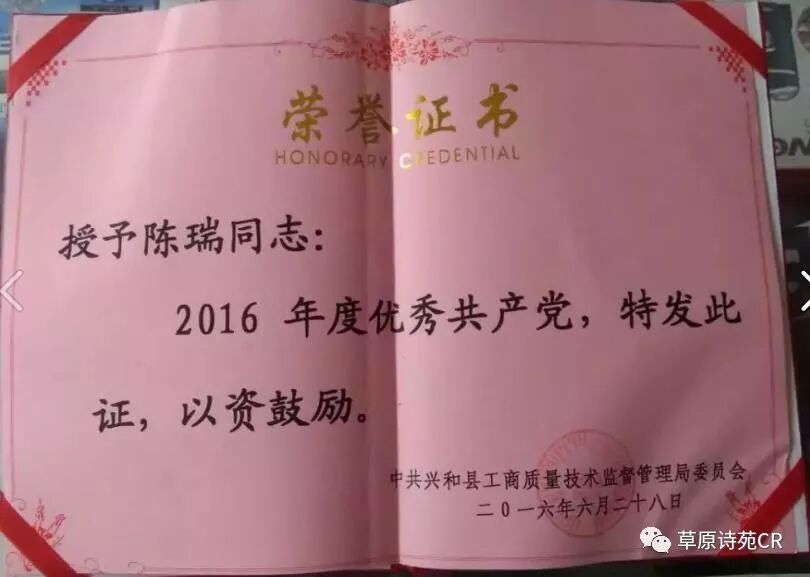 荣誉证书
HONORARY CREDENTIAL
授予陈瑞同志：
2016 年度优秀共产党，特发此
证，以资鼓励。
中共兴和县工商质量技术监督管理局委员会
二〇一六年六月二十八日
草原诗苑CR